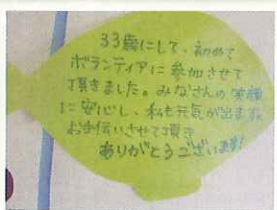 33歳にして、初めて
ボランティアに参加させて
頂きました。みなさんの笑顔
に安心し、私も元気が出ます。
お手伝いさせて頂き
ありがとうございます!